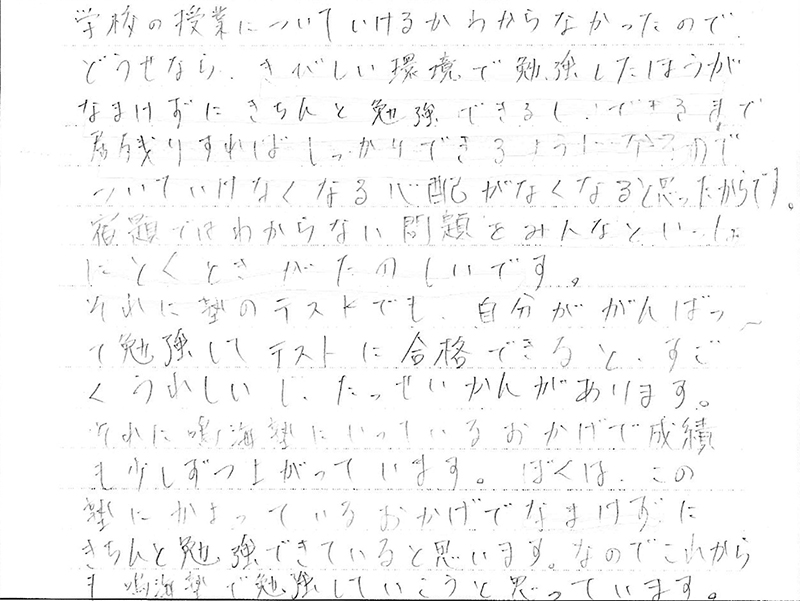 学校の授業についていけるかわからなかったので、
どうせなら、きびしい環境で勉強したほうが
なまけずにきちんと勉強できるし、できるまで
居残りすればしっかりできるようになるので
ついていけなくなる心配がなくなると思ったからです。
宿題ではわからない問題をみんなといっしょ
にとくときがたのしいです。
それに塾のテストでも、自分ががんばっ
て勉強してテストに合格できると、すご
くうれしいし、たっせいかんがあります。
それに鳴海塾にいっているおかげで成績
も少しずつ上がっています。ぼくは、この
塾にかよっているおかげでなまけずに
きちんと勉強できていると思います。なのでこれから
も鳴海塾で勉強していこうと思っています。